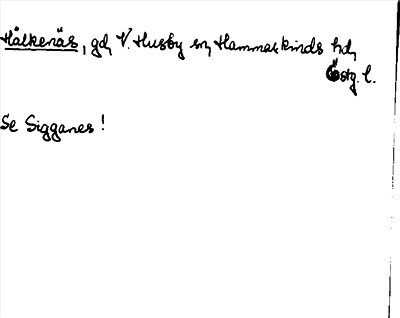 Hålkenäs, gd, V. Husby sn, Hammarkinds hd,
Östg. l.
Se Sigganes!